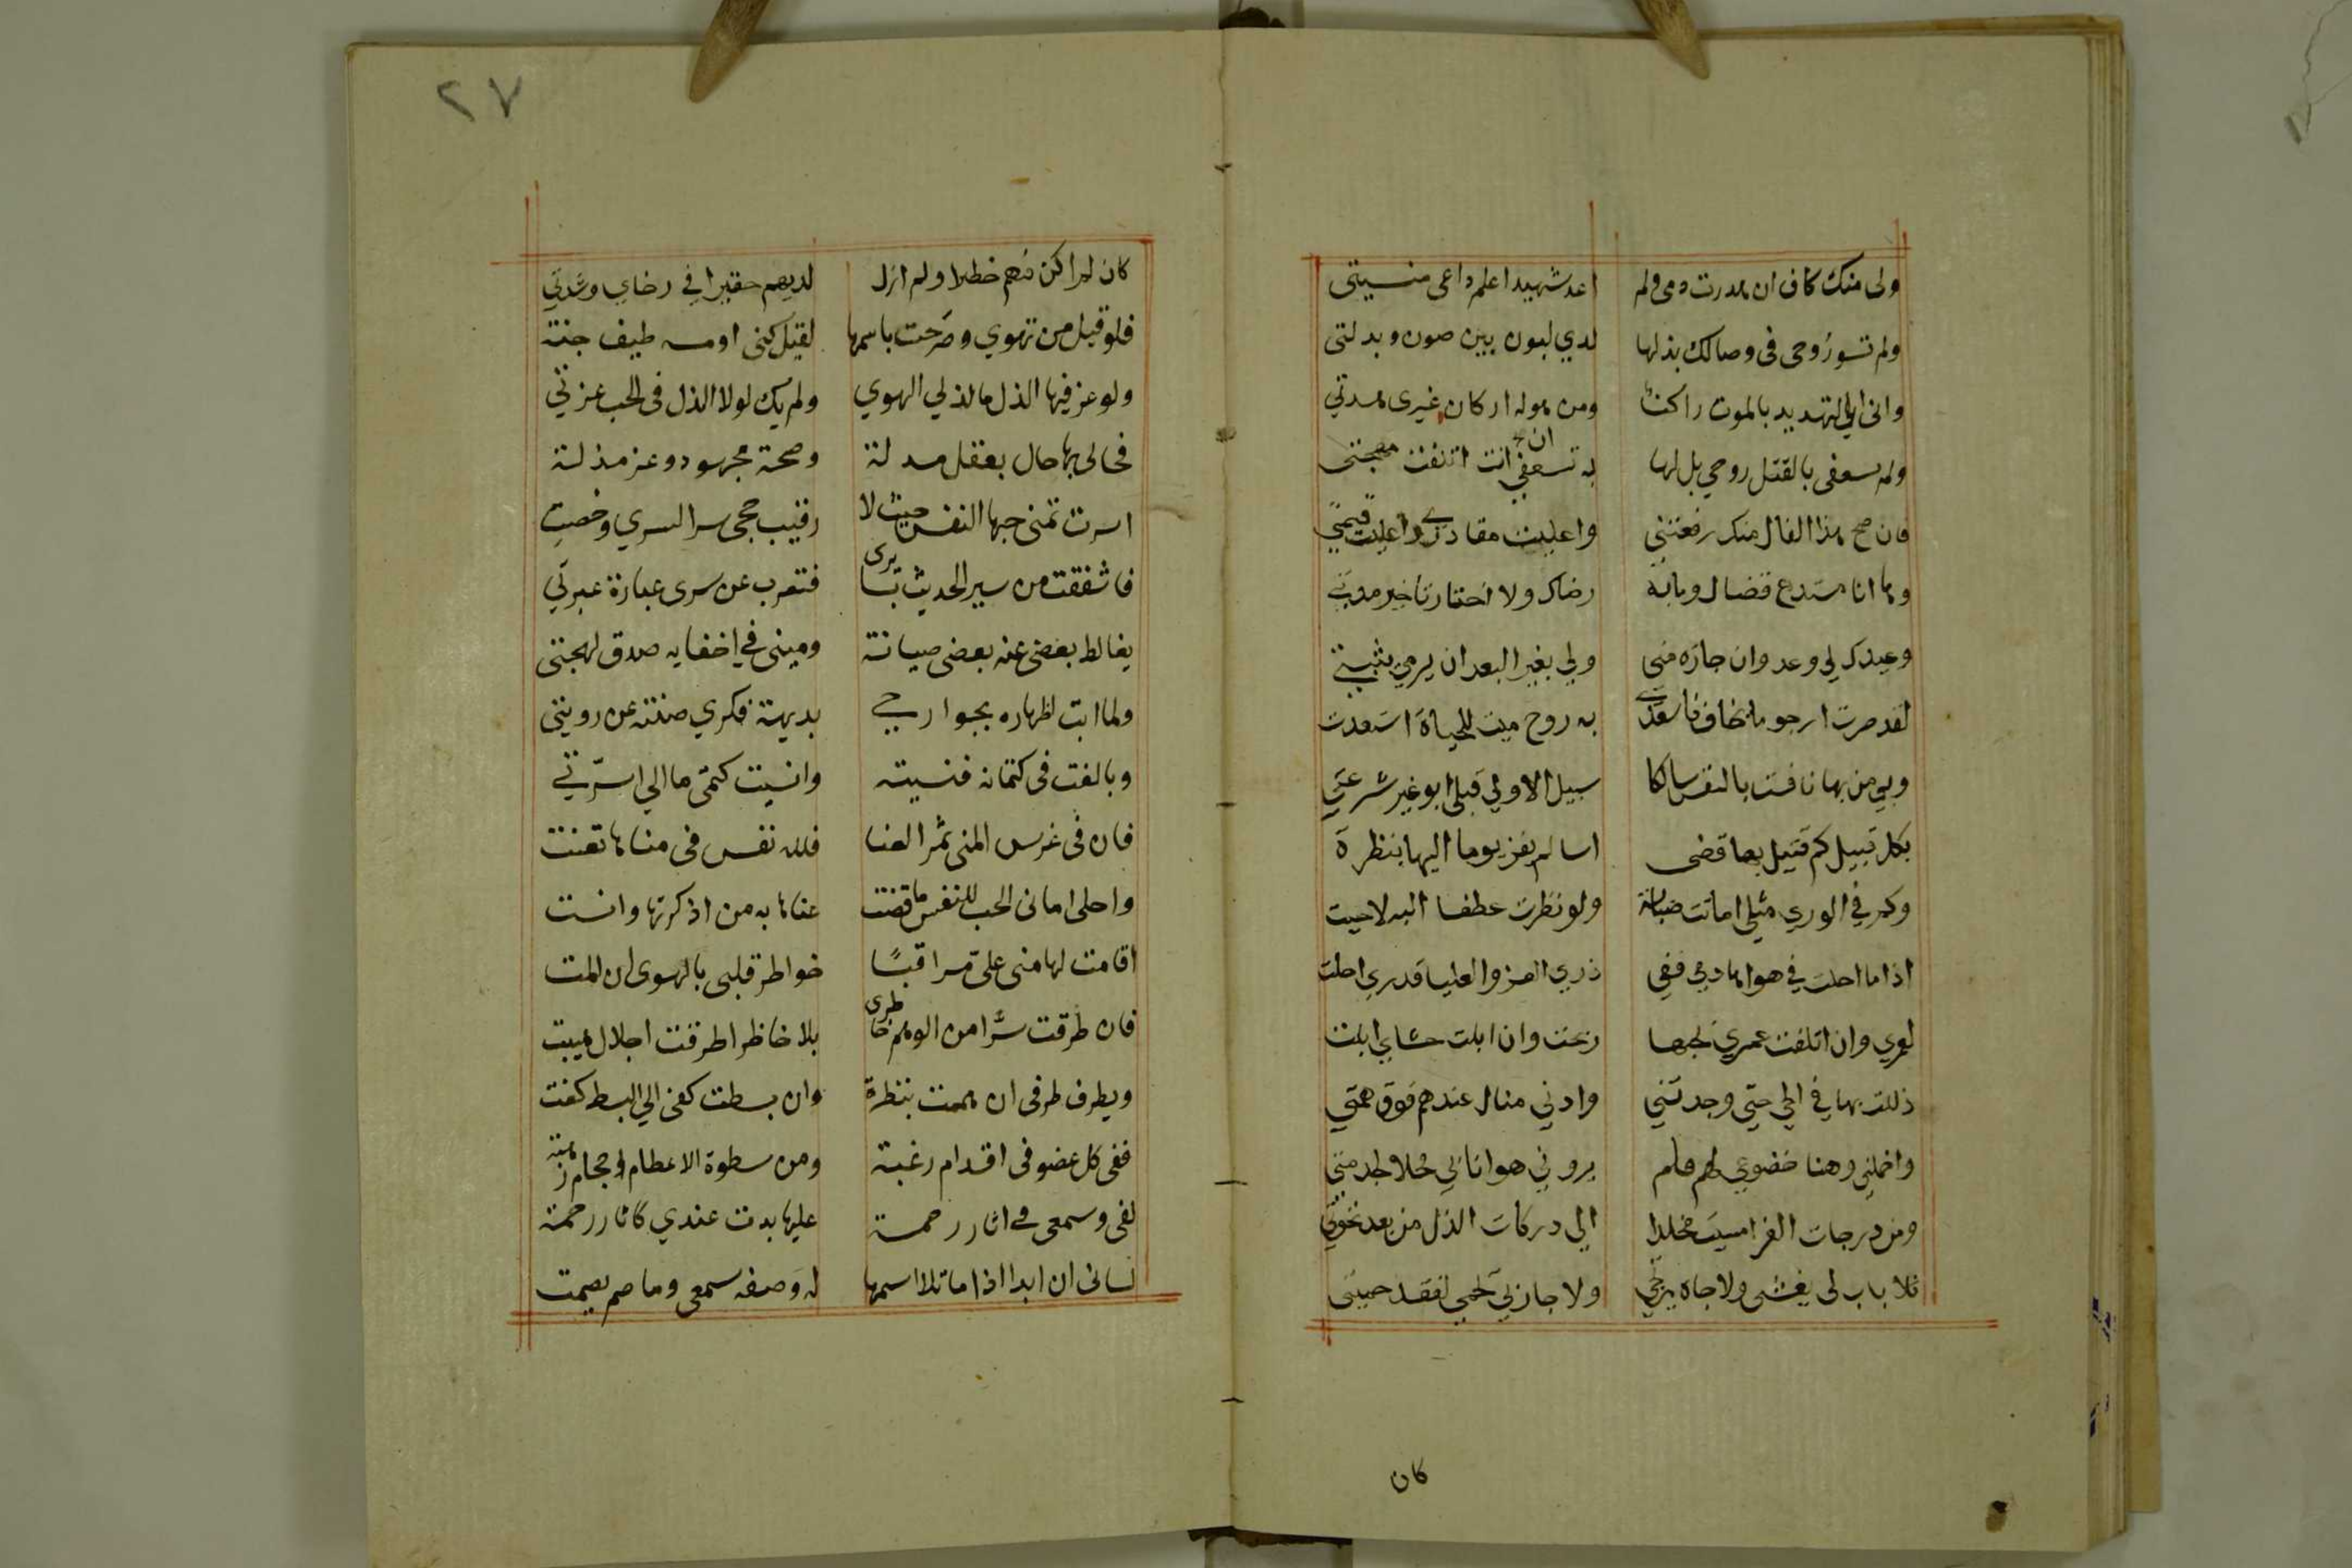 ولى منك كاف ان هدرت دمى ولم اعد شهيدا علم داعى منيتى
ولم تسو روحى فى وصالك بذلها لدي لبون بين صون وبدلتى
وانى الى التهديد بالموت راكن ومن هوله اركان غيرى هدتي
ولم تسعفى بالقتل روحي بل لها به تسعفي ان انت اتلفت مهجتى
فان صح هذا الفال منك رفعتني واعليت مقداري واعليت قيمتي
وها انا مستدع قضاك وما به رضاك ولا اختار تاخير مدتي
وعيدك لي وعد وانجازه منى ولي بغير البعد ان يرمي يثبت
لقد صرت ارجو ما يخاف فاسعدي به روح ميت للحياة استعدت
وبي من بها نافست بالنفس سالكا سبيل الاولي قبلى ابو غير شرعتي
بكل قبيل كم قتيل بها قضى اسا لم يفز يوما اليها بنظرة
وكم في الوري مثلي اماتت صبابة ولو نظرت عطفا اليه لاحيت
اذا ما احلت في هواها دمي ففي ذري العز والعليا قدري احلت
لعمري وان اتلفت عمري بحبها ربحت وان ابلت حشاي ابلت
ذللت بها في الحي حتي وجدتني وادني منال عندهم فوق همتي
واخملني وهنا خضوعي لهم فلم يروني هوانا بي محلا لخدمتي
ومن درجات العز امسيت مخلدا الي دركات الذل من بعد نخوتي
فلا باب لى يغشى ولا جاه يرتجي ولا جار لي يحمي لفقد حميتى
كان
٢٧
كان لم اكن فيهم خطيرا ولم ازل لديهم حقيرا في رخاي وشدتي
فلو قيل من تهوي وصرحت باسمها لقيل كنى او مسه طيف جنة
ولو عز فيها الذل ما لذ لي الهوي ولم يك لولا الذل فى الحب عزتي
فحالى بها حال بعقل مدلة وصحة مجهود وعز مذلة
اسرت تمنى حبها النفس حيث لا رقيب حجى سرا لسري وخصت
فاشفقت من سير الحديث بسايرى فتعرب عن سرى عبارة عبرتي
يغالط بعضى عنه بعضى صيانة ومينى في اخفايه صدق لهجتى
ولما ابت اظهاره بجوارحي بديهة فكري صنته عن رويتى
وبالغت فى كتمانه فنسيته وانسيت كتمى ما الي اسرتي
فان فى غرس المنى ثمر العنا فلله نفس فى مناها تعنت
واحلى امانى الحب للنفس ما قضت عناها به من اذكرتها وانست
اقامت لها منى على مراقبا خواطر قلبى بالهوى ان المت
فان طرقت سرا من الوهم خاطرى بلا خاظر اطرقت اجلال هيبت
ويطرف طرفى ان هممت بنظرة وان بسطت كفى الي البسط كفت
ففى كل عضو فى اقدام رغبة ومن سطوة الاعظام احجام رهبة
لفى وسمعى فى اثار رحمة عليها بدت عندي كاثار رحمة
لسانى ان ابدا اذا ما تلا اسمها له وصفه سمعى وما صم يصمت